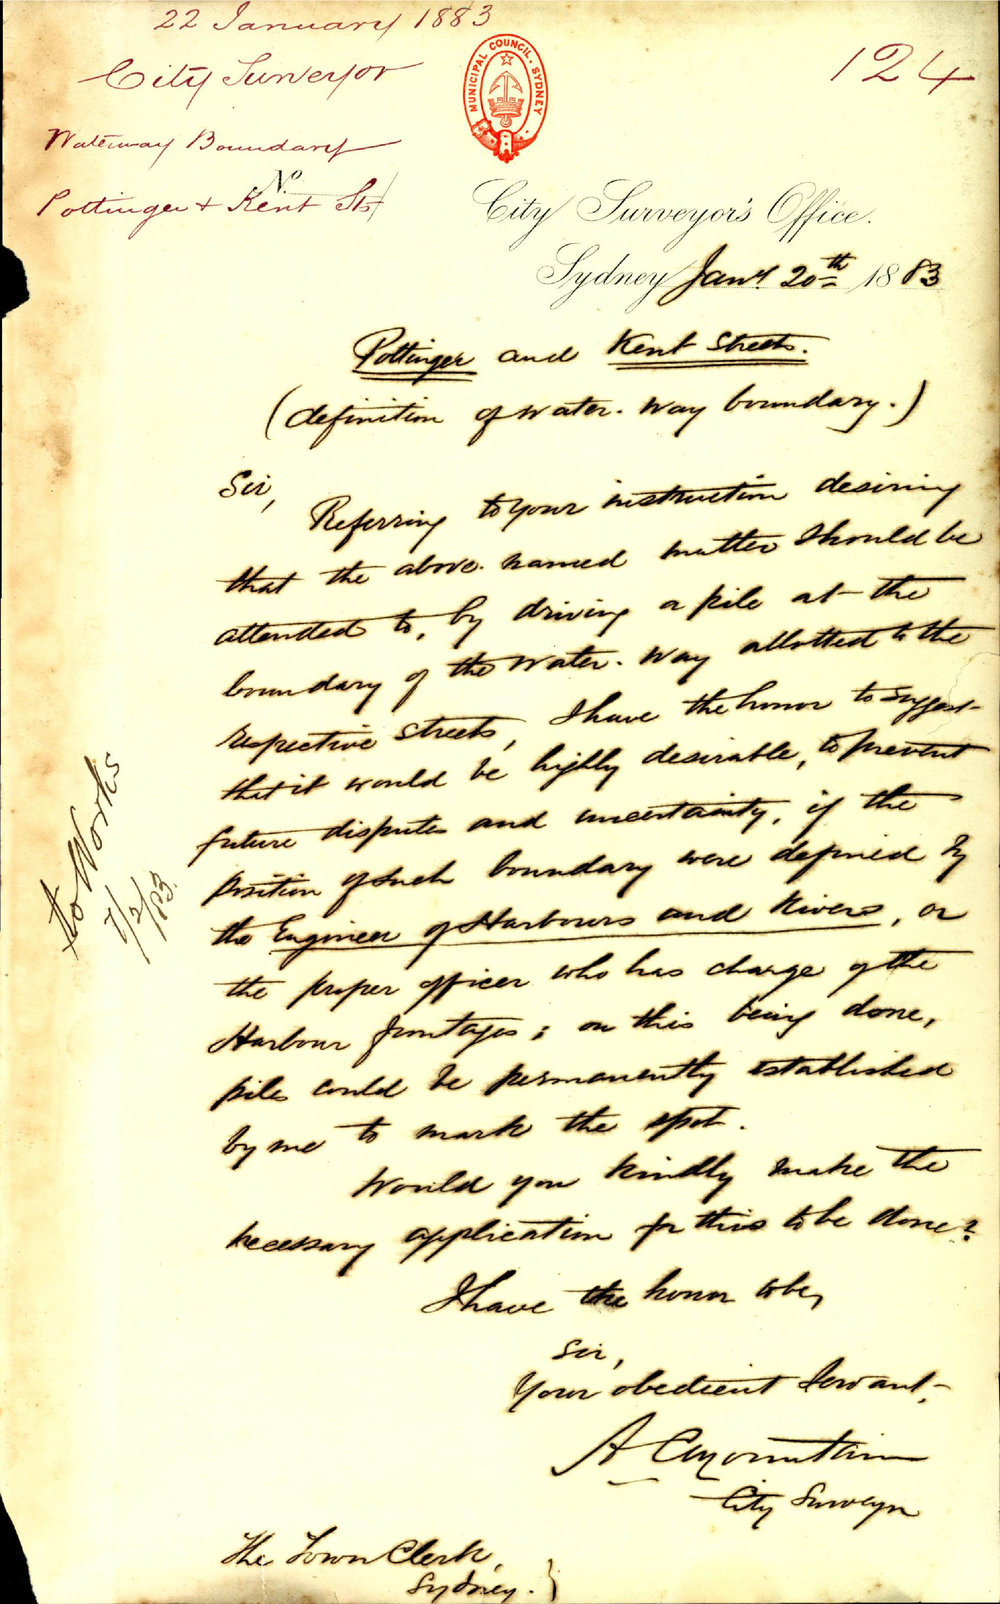 22 January 1883
City Surveyor
124
Waterway Boundary
Pottinger + Kent Sts
MUNICIPAL COUNCIL. SYDNEY
No
City Surveyor's Office.
Sydney Jany 20th 1883
Pottinger and Kent Streets.
(definition of water-way boundary.)
Sir,
Referring to your instruction desiring
that the above-named matter should be
attended to, by driving a pile at the
boundary of the water-way allotted to the
respective streets, I have the honor to suggest
that it would be highly desirable, to prevent
future disputes and uncertainty, if the
position of such boundary were defined by
the Engineer of Harbours and Rivers, or
the proper officer who has charge of the
Harbour frontages; on this being done,
piles could be permanently established
by me to mark the spot.
Would you kindly make the
necessary application for this to be done?
I have the honor to be,
Sir,
Your obedient Servant,
A
City Surveyor
The Town Clerk,
Sydney.
to Works
7/2/83.